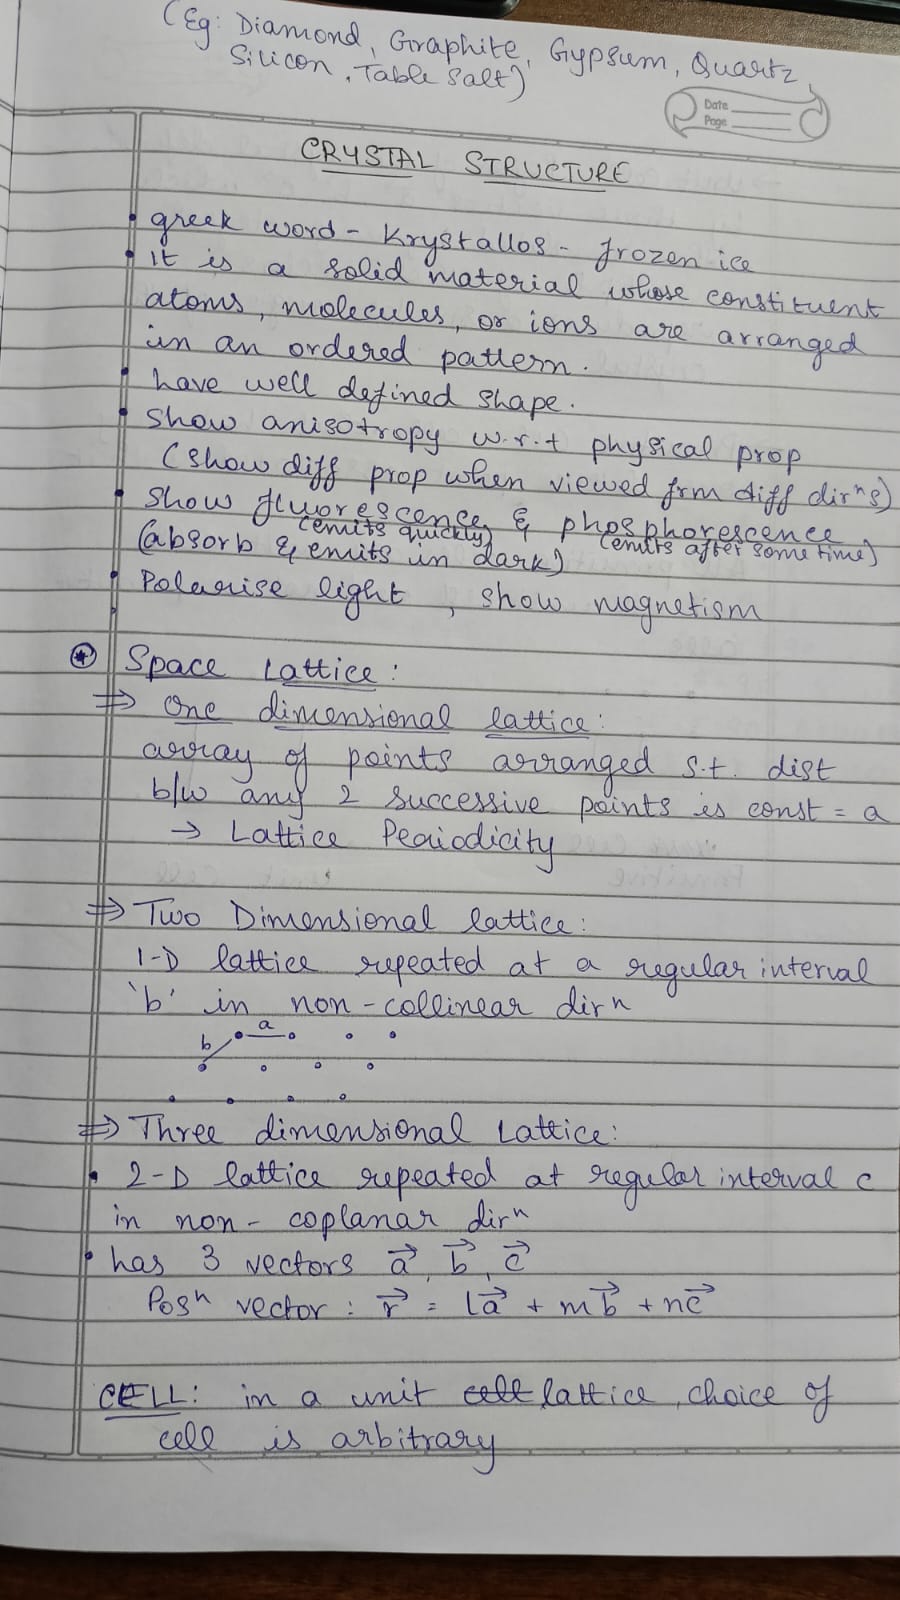 (Eg: Diamond, Graphite, Gypsum, Quartz,
Silicon, Table Salt)
Date
Page
CRYSTAL STRUCTURE
• greek word - Krystallos - frozen ice
• it is a solid material whose constituent
atoms, molecules, or ions are arranged
in an ordered pattern.
• have well defined shape.
• show anisotropy w.r.t physical prop
(show diff prop when viewed frm diff dirⁿs)
• show fluorescence & phosphorescence
(emits quickly) (emits after some time)
(absorb & emits in dark)
• Polarise light, show magnetism
Space Lattice:
⇒ One dimensional lattice:
array of points arranged s.t. dist
b/w any 2 successive points is const = a
→ Lattice Periodicity
⇒ Two Dimensional lattice:
1-D lattice repeated at a regular interval
'b' in non-collinear dirⁿ
a
b
⇒ Three dimensional Lattice:
• 2-D lattice repeated at regular interval c
in non-coplanar dirⁿ
• has 3 vectors a⃗, b⃗, c⃗
Posⁿ vector: r⃗ = la⃗ + mb⃗ + nc⃗
CELL: in a unit cell lattice, choice of
cell is arbitrary